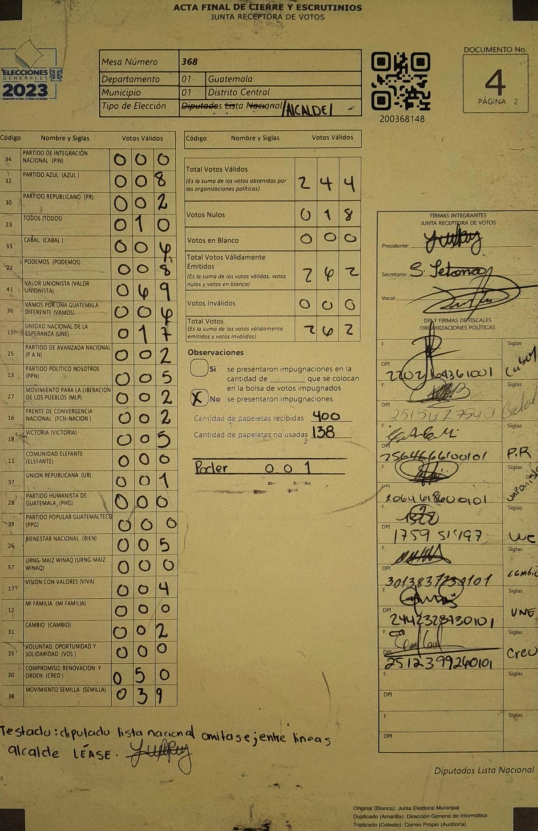 ACTA FINAL DE CIERRE Y ESCRUTINIOS
JUNTA RECEPTORA DE VOTOS
ELECCIONES
GENERALES
2023
Mesa Número 368
Departamento 01 Guatemala
Municipio 01 Distrito Central
Tipo de Elección Diputados Lista Nacional /ALCALDE/
200368148
DOCUMENTO No.
4
PÁGINA 2
Código Nombre y Siglas Votos Válidos
34 PARTIDO DE INTEGRACIÓN NACIONAL (PIN) 0 0 0
32 PARTIDO AZUL (AZUL) 0 0 8
30 PARTIDO REPUBLICANO (PR) 0 0 2
23 TODOS (TODOS) 0 1 0
33 CABAL (CABAL) 0 0 4
22 PODEMOS (PODEMOS) 0 0 8
41 VALOR UNIONISTA (VALOR UNIONISTA) 0 6 9
36 VAMOS POR UNA GUATEMALA DIFERENTE (VAMOS) 0 0 4
15 UNIDAD NACIONAL DE LA ESPERANZA (UNE) 0 1 7
25 PARTIDO DE AVANZADA NACIONAL (P A N) 0 0 2
13 PARTIDO POLITICO NOSOTROS (PPN) 0 0 5
27 MOVIMIENTO PARA LA LIBERACIÓN DE LOS PUEBLOS (MLP) 0 0 2
16 FRENTE DE CONVERGENCIA NACIONAL (FCN NACION) 0 0 2
18 VICTORIA (VICTORIA) 0 0 5
11 COMUNIDAD ELEFANTE (ELEFANTE) 0 0 0
37 UNION REPUBLICANA (UR) 0 0 1
28 PARTIDO HUMANISTA DE GUATEMALA (PHG) 0 0 0
39 PARTIDO POPULAR GUATEMALTECO (PPG) 0 0 0
26 BIENESTAR NACIONAL (BIEN) 0 0 5
57 URNG-MAIZ WINAQ (URNG-MAIZ WINAQ) 0 0 0
17 VISION CON VALORES (VIVA) 0 0 4
12 MI FAMILIA (MI FAMILIA) 0 0 0
31 CAMBIO (CAMBIO) 0 0 2
35 VOLUNTAD, OPORTUNIDAD Y SOLIDARIDAD (VOS) 0 0 0
20 COMPROMISO, RENOVACION Y ORDEN (CREO) 0 5 0
38 MOVIMIENTO SEMILLA (SEMILLA) 0 3 9
Votos Válidos
Total Votos Válidos 2 4 4
(Es la suma de los votos obtenidos por las organizaciones políticas)
Votos Nulos 0 1 8
Votos en Blanco 0 0 0
Total Votos Válidamente Emitidos 2 6 2
(Es la suma de los votos válidos, votos nulos y votos en blanco)
Votos Inválidos 0 0 0
Total Votos 2 6 2
(Es la suma de los votos válidamente emitidos y votos inválidos)
Observaciones
Si se presentaron impugnaciones en la cantidad de ______ que se colocan en la bolsa de votos impugnados
X No se presentaron impugnaciones.
Cantidad de papeletas recibidas 400
Cantidad de papeletas no usadas 138
Poder 0 0 1
FIRMAS INTEGRANTES
JUNTA RECEPTORA DE VOTOS
Presidente:
Secretario:
Vocal
DPI Y FIRMAS DE FISCALES
ORGANIZACIONES POLÍTICAS
Siglas
Cabal
2564666100101 P.R
3013837230101
2442323730101 UNE
2512399240101 Creo
DPI
Testado: diputado lista nacional omitase, entre líneas
alcalde LÉASE.
Diputados Lista Nacional
Original (Blanca): Junta Electoral Municipal
Duplicado (Amarillo): Dirección General de Informática
Triplicado (Celeste): Correo Propio (Auditoría)